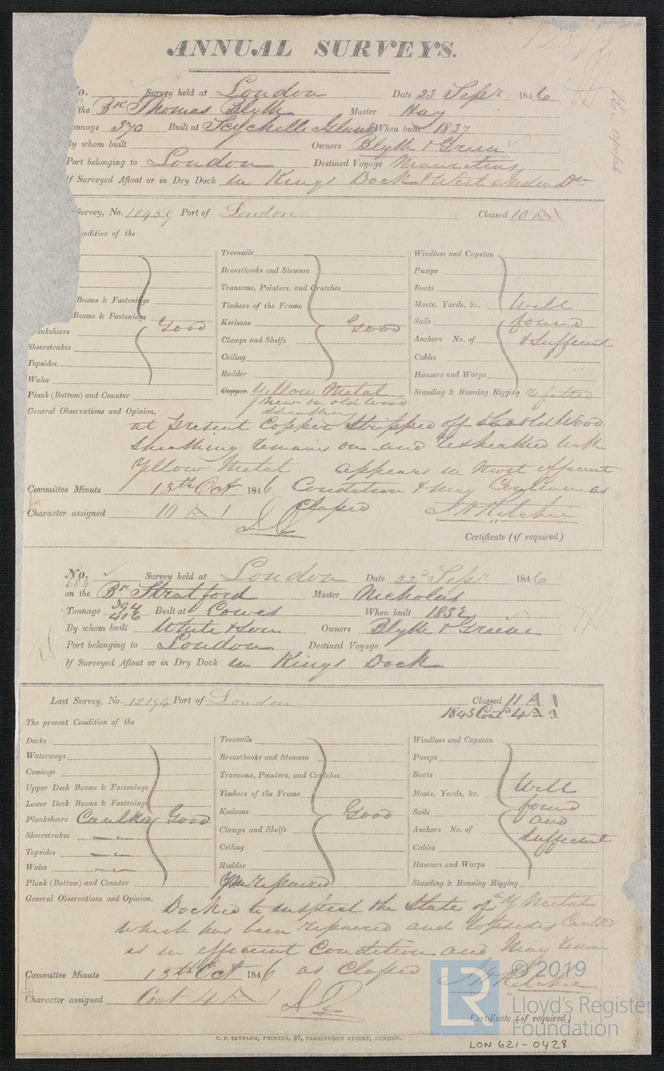 ANNUAL SURVEYS.
o. Survey held at London Date 23 Sepr 1846
the Bk Thomas Blyth Master Hay
onnage 370 Built at Seychelle Island When built 1837
y whom built Owners Blyth & Green
Port belonging to London Destined Voyage Mauritius
If Surveyed Afloat or in Dry Dock in Kings Dock & West India Dk
Survey, No. 11459 Port of London Classed 10 A 1
ondition of the
Treenails Windlass and Capstan
Breasthooks and Stemson Pumps
Transoms, Pointers, and Crutches Boats
Beams & Fastenings Timbers of the Frame Masts, Yards, &c. Well
Beams & Fastenings Keelsons Good Sails found
anksheers Good Clamps and Shelfs Anchors No. of & Sufficient
Sheerstrakes Ceiling Cables
Topsides Rudder Hausers and Warps
Wales Copper Yellow Metal Standing & Running Rigging refitted
Plank (Bottom) and Counter New on old Wood
General Observations and Opinion, Sheathing
at present Copper Stripped off the old Wood
Sheathing remains on and resheathed with
Yellow Metal appears in most efficient
Committee Minute 13th Oct 1846 Condition & may Continue as
Character assigned 10 A 1 Classed J H Ritchie
Certificate (if required)
No. Survey held at London Date 22d Sepr 1846
684
on the Bk Stratford Master Nicholas
Tonnage 394 416 Built at Cowes When built 1832
By whom built White & Son Owners Blyth & Greene
Port belonging to London Destined Voyage
If Surveyed Afloat or in Dry Dock in Kings Dock
Last Survey, No. 12194 Port of London Classed 11 A 1
1843 Cont 4 A 1
The present Condition of the
Decks Treenails Windlass and Capstan
Waterways Breasthooks and Stemson Pumps
Comings Transoms, Pointers, and Crutches Boats
Upper Deck Beams & Fastenings Timbers of the Frame Masts, Yards, &c. Well
Lower Deck Beams & Fastenings Keelsons Good Sails found
Planksheers Caulked Good Clamps and Shelfs Anchors No. of and
Sheerstrakes Ceiling Cables Sufficient
Topsides Rudder Hausers and Warps
Wales repaired Standing & Running Rigging
Plank (Bottom) and Counter
General Observations and Opinion,
Docked to inspect the State of the Y Metal
which has been repaired and topsides Caulked
is in efficient Condition and may
Committee Minute 13th Oct 1846 as Classed J H Ritchie
Character assigned Cont 4 A 1
Certificate (if required)
C. F. SEYFANG, PRINTER, 57, FARRINGDON STREET, LONDON.
LR © 2019
Lloyd's Register
Foundation
LON 621-0428